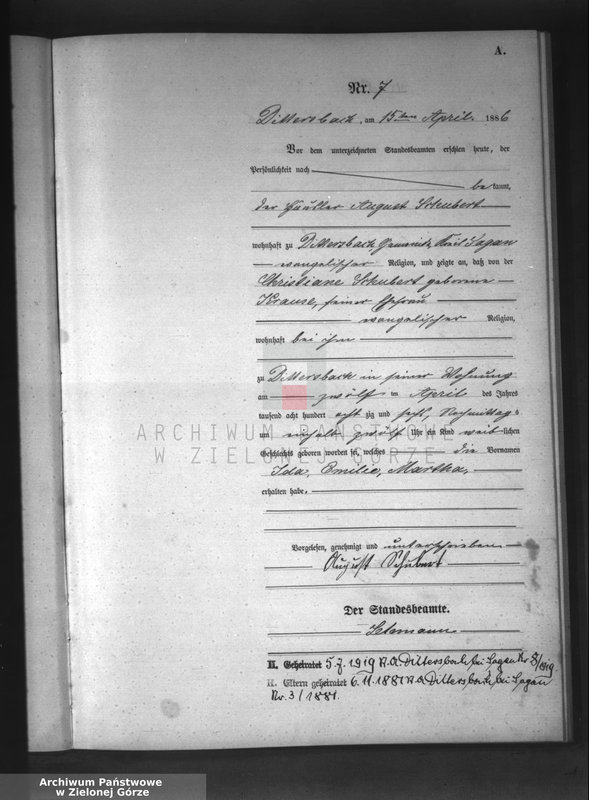 A.
Nr. 7
Dittersbach, am 15ten April 1886
Vor dem unterzeichneten Standesbeamten erschien heute, der
Persönlichkeit nach
bekannt,
der Häusler August Schubert
wohnhaft zu Dittersbach Kreis Sagan
evangelischer Religion, und zeigte an, daß von der
Christiane Schubert geborene
Krause, seiner Ehefrau
evangelischer Religion,
wohnhaft bei ihm
zu Dittersbach in seiner Wohnung
am zwölf ten April des Jahres
tausend acht hundert acht zig und sechs, Nachmittags
um Uhr ein Kind weiblichen
Geschlechts geboren worden sei, welches die Vornamen
Ida, Emilie, Martha,
erhalten habe.
Vorgelesen, genehmigt und unterschrieben
August Schubert
Der Standesbeamte.
II. Geheiratet 5.7.1919 Dittersbach bei Sagan Nr 8/1919
II. Eltern geheiratet 6.11.1881 Dittersbach bei Sagan
Nr. 3/1881.
ARCHIWUM PAŃSTWOWE
W ZIELONEJ GÓRZE
Archiwum Państwowe
w Zielonej Górze